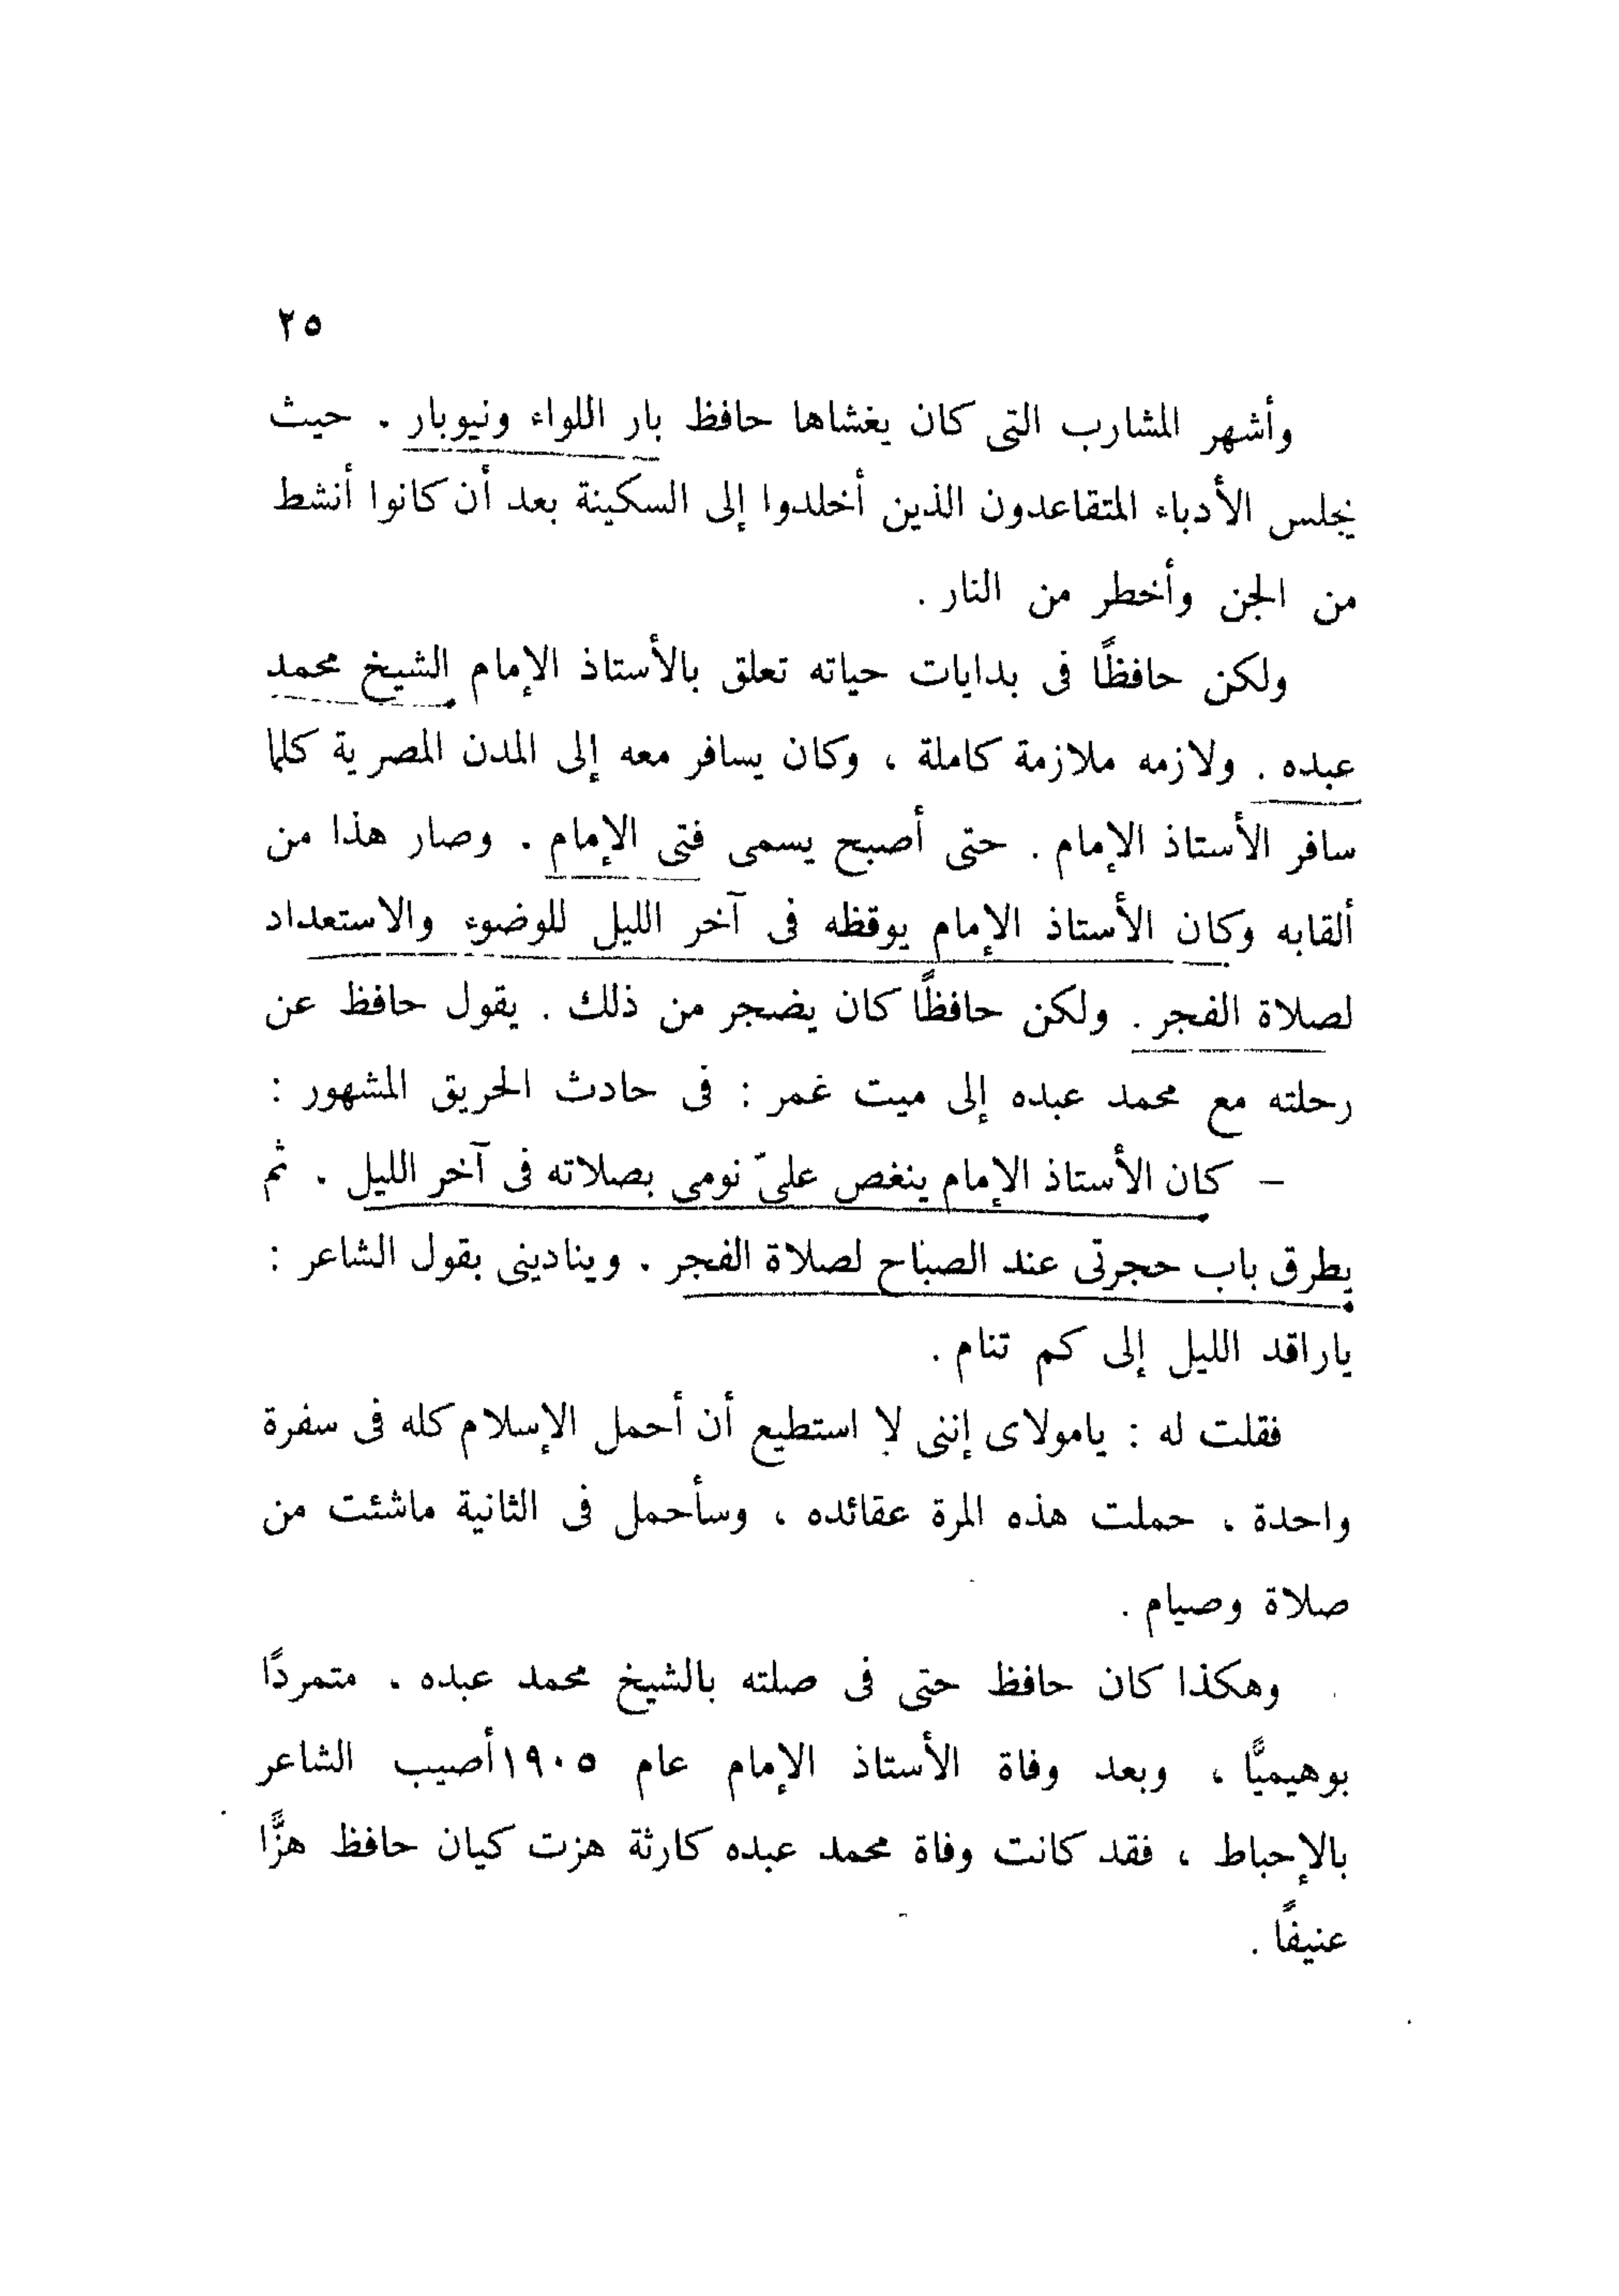 ٢٥
وأشهر المشارب التى كان يغشاها حافظ بار اللواء ونيوبار . حيث
يجلس الأدباء المتقاعدون الذين أخلدوا إلى السكينة بعد أن كانوا أنشط
من الجن وأخطر من النار .
ولكن حافظًا فى بدايات حياته تعلق بالأستاذ الإمام الشيخ محمد
عبده . ولازمه ملازمة كاملة ، وكان يسافر معه إلى المدن المصرية كلما
سافر الأستاذ الإمام . حتى أصبح يسمى فتى الإمام . وصار هذا من
ألقابه وكان الأستاذ الإمام يوقظه فى آخر الليل للوضوء والاستعداد
لصلاة الفجر . ولكن حافظًا كان يضجر من ذلك . يقول حافظ عن
رحلته مع محمد عبده إلى ميت غمر : فى حادث الحريق المشهور :
– كان الأستاذ الإمام ينغص علىّ نومى بصلاته فى آخر الليل . ثم
يطرق باب حجرتى عند الصباح لصلاة الفجر . وينادينى بقول الشاعر :
ياراقد الليل إلى كم تنام .
فقلت له : يامولاى إننى لا استطيع أن أحمل الإسلام كله فى سفرة
واحدة ، حملت هذه المرة عقائده ، وسأحمل فى الثانية ماشئت من
صلاة وصيام .
وهكذا كان حافظ حتى فى صلته بالشيخ محمد عبده . متمردًا
بوهيميًّا ، وبعد وفاة الأستاذ الإمام عام ١٩٠٥ أصيب الشاعر
بالإحباط ، فقد كانت وفاة محمد عبده كارثة هزت كيان حافظ هزًّا
عنيفًا .